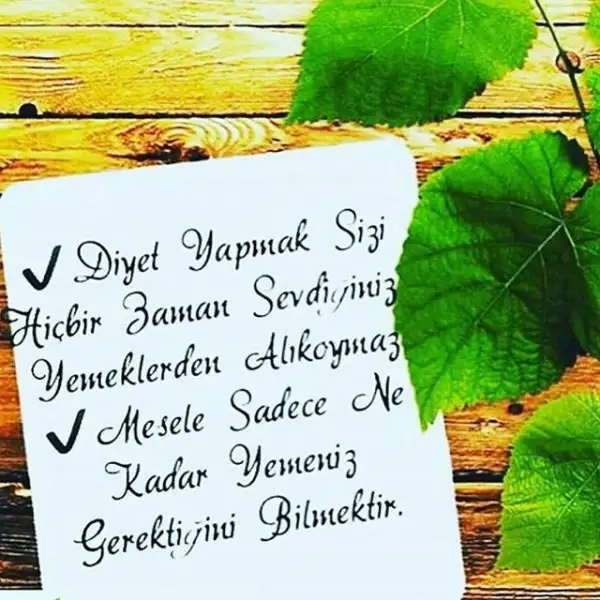 ✓ Diyet Yapmak Sizi
Hiçbir Zaman Sevdiğiniz
Yemeklerden Alıkoymaz
✓ Mesele Sadece Ne
Kadar Yemeniz
Gerektiğini Bilmektir.